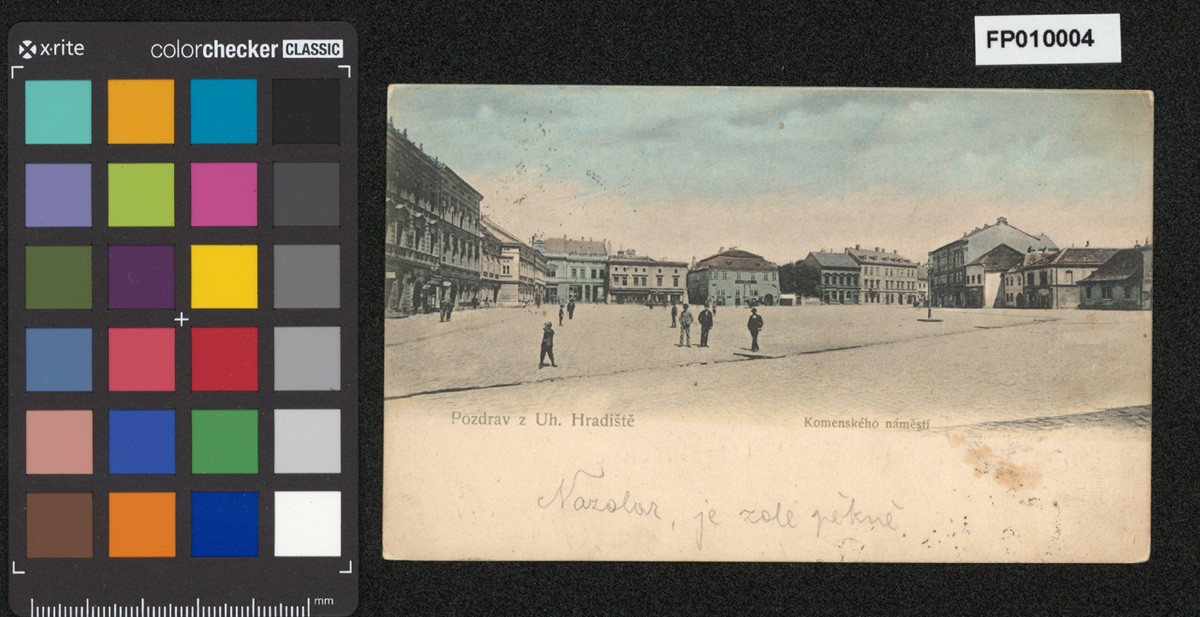 x·rite
colorchecker CLASSIC
FP010004
Pozdrav z Uh. Hradiště
Komenského náměstí
Nazdar, je zde pěkně
mm